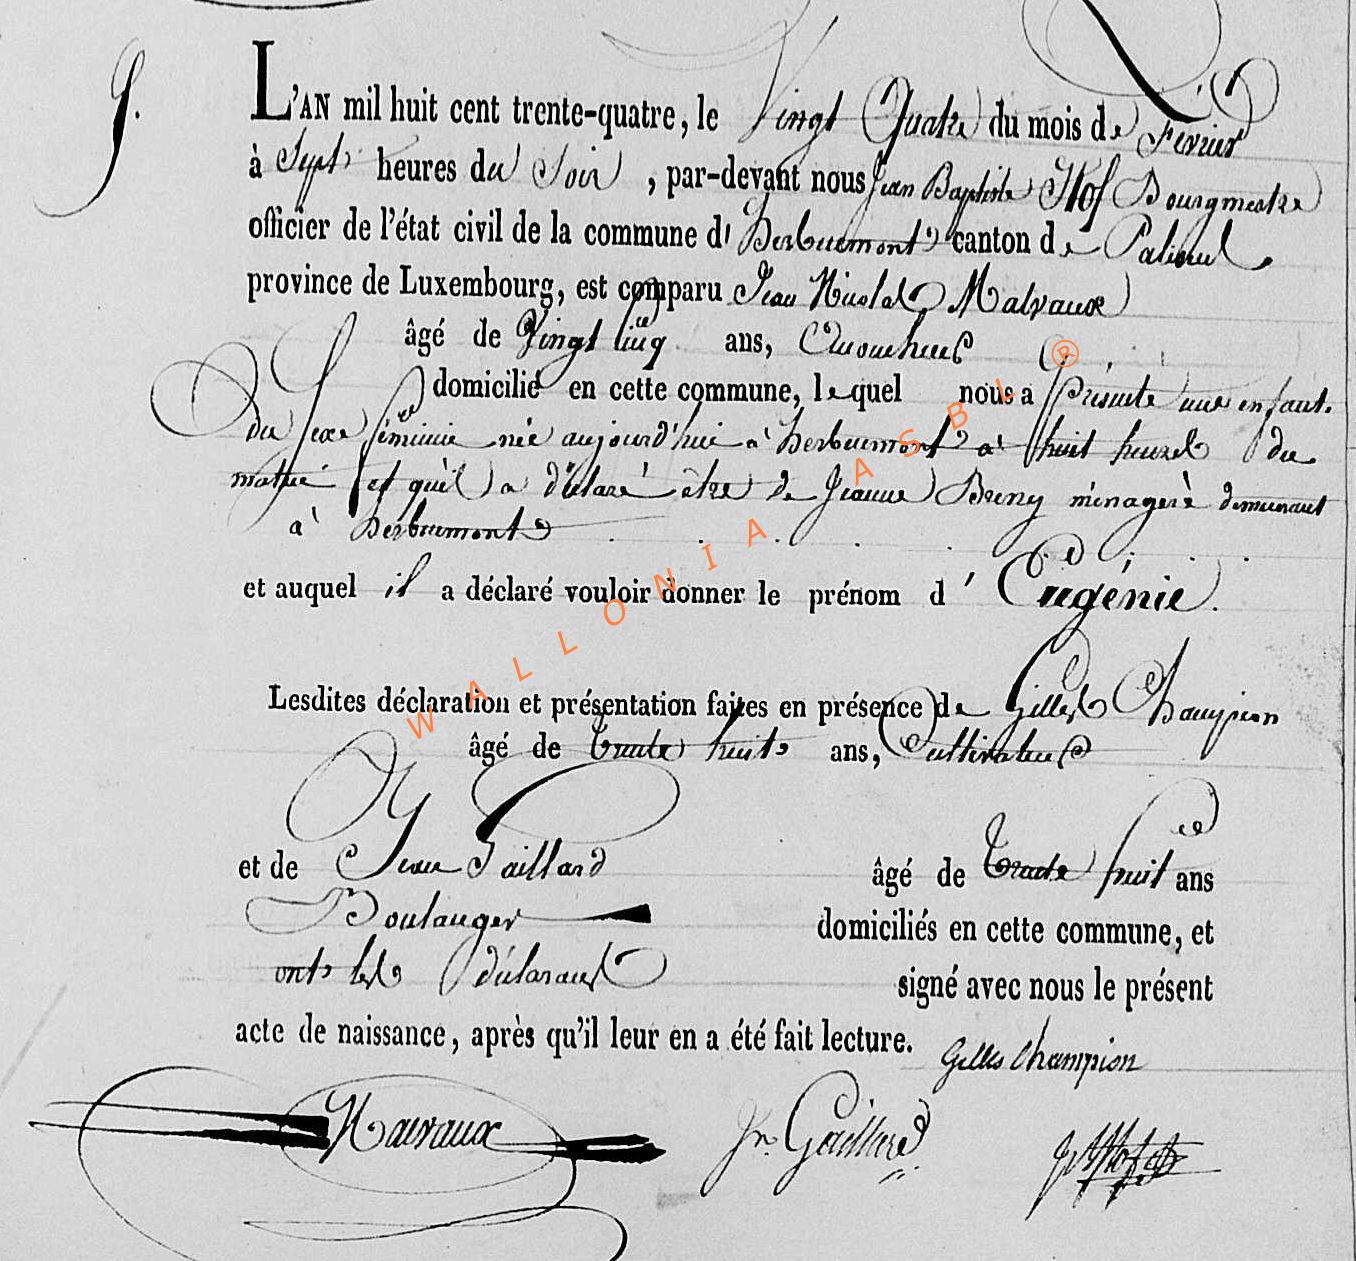 9.
L'AN mil huit cent trente-quatre, le Vingt Quatre du mois de Février
à Sept heures du Soir, par-devant nous Jean Baptiste Bourgmestre
officier de l'état civil de la commune d'herbeumont canton de Paliseul
province de Luxembourg, est comparu Jean Nicolas Malvaux
âgé de Vingt cinq ans,
domicilié en cette commune, lequel nous a présenté une enfant
du sexe féminin née aujourd'hui à herbeumont à huit heures du
matin et qu'il a déclaré être de Jeanne ménagère demeurant
à herbeumont
et auquel il a déclaré vouloir donner le prénom d'Eugénie.
Lesdites déclaration et présentation faites en présence de Gilles Champion
âgé de trente huit ans, Cultivateur
et de Jean Gaillard âgé de trente huit ans
Boulanger domiciliés en cette commune, et
ont les déclarans signé avec nous le présent
acte de naissance, après qu'il leur en a été fait lecture.
Gilles Champion
Malvaux Jn. Gaillard
WALLONIA ASBL ®